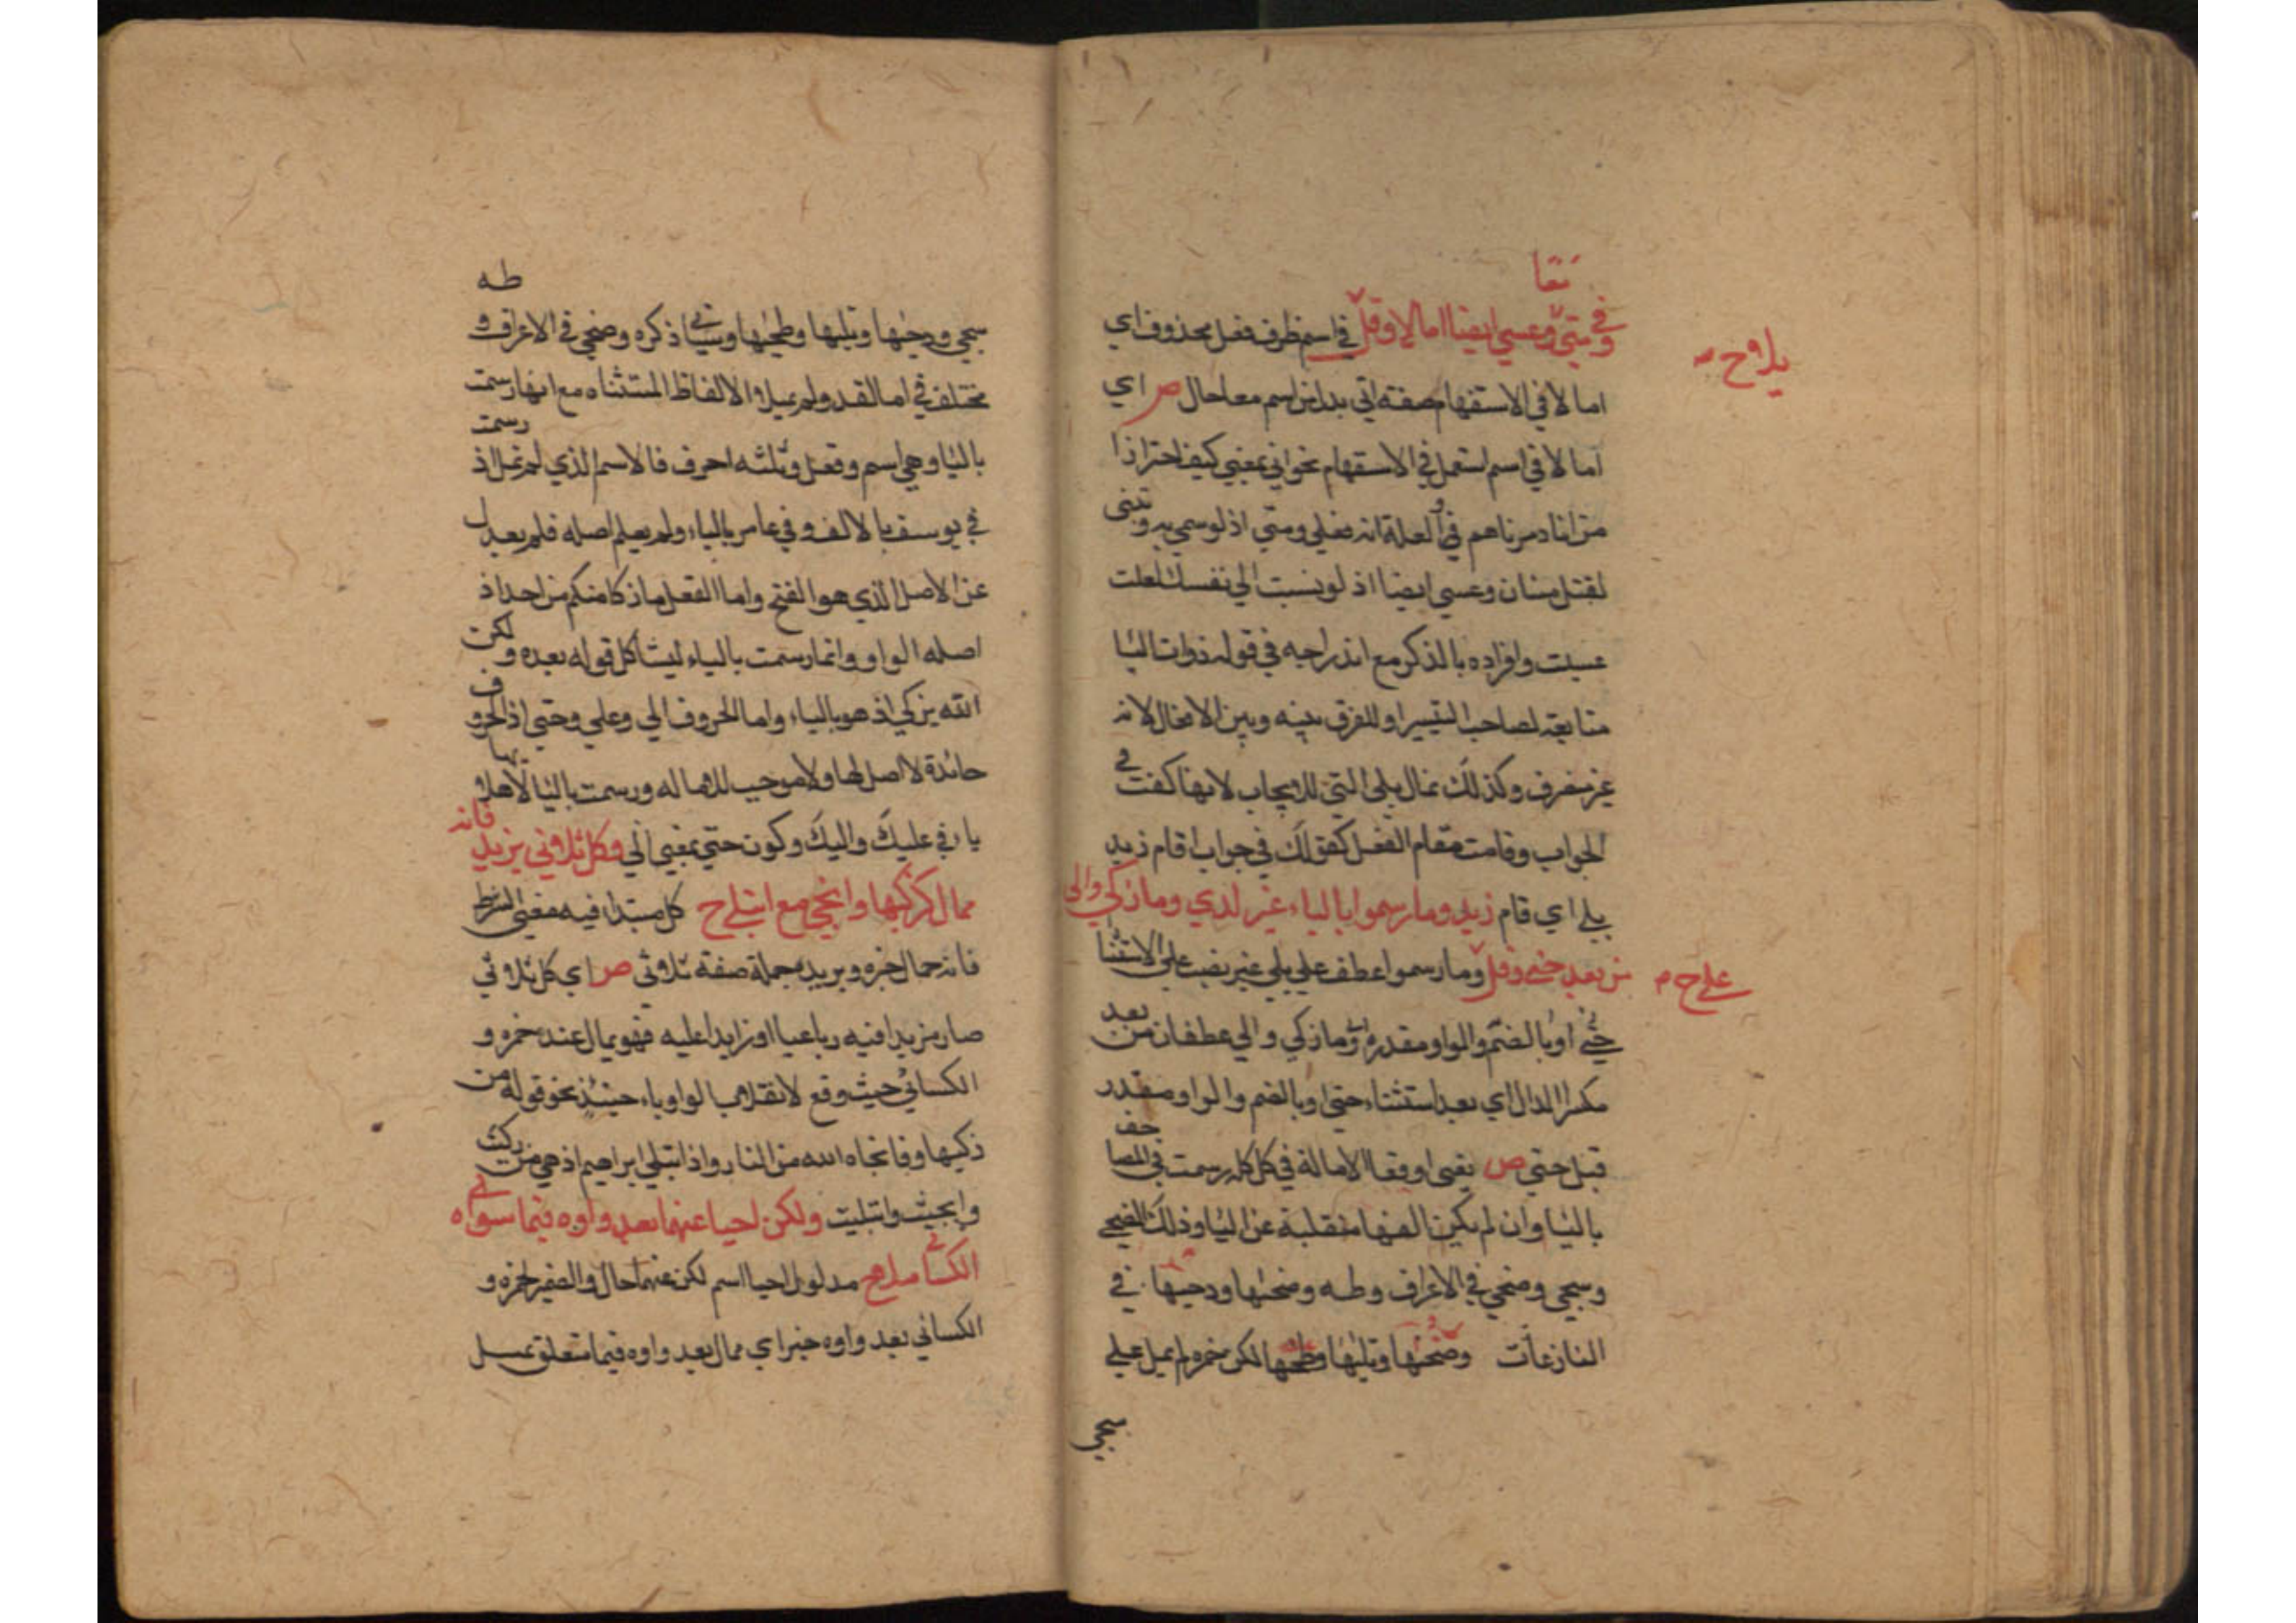 وفي متى وعسى ايضا امالا وقل في اسم ظرف فعل محذوف اي
امالا في الاستفهام صفة اني بدل من اسم معا حال ص اي
امالا في اسم استعمل في الاستفهام نحو انى بمعنى كيف احترازا
من انا دمرناهم في العلة انه فعلى ومتى اذ لو سمي به وتثنى
لقتل متيان وعسى ايضا اذ لو نسبت الى نفسك لعلت
عسيت وافراده بالذكر مع اندراجه في قوله ذوات اليا
متابعة لصاحب التيسير او للفرق بينه وبين الافعال لانه
غير متصرف وكذلك تمال بلى التي للايجاب لانها كفت في
الجواب وقامت مقام الفعل كقولك في جواب اقام زيد
بلى اي قام زيد وما رسموا بالياء غير لدى وما زكى والى
من بعد حتى وقل وما رسموا عطف على بلى غير نصب على الاستثنا
حتى او بالضم والواو مقدرة وما زكى والى عطفان من بعد
مكسر الدال اي بعد استثناء حتى او بالضم والواو مقدر
قبل حتى ص يعني اوقعا الامالة في كل كلمة رسمت في المصاحف
باليا وان لم يكن الفها منقلبة عن اليا وذلك الضحى
وسجى وضحى في الاعراف وطه وضحيها ودحيها في
النازعات وضحيها وتليها وطحيها لكن حمزه لم يمل على
سجى
يلا وح م
على ح م
طه
سجى ودحيها وتليها وطحيها وسياتي ذكره وضحى في الاعراف و
مختلف في امالة قد ولم يميلوا الالفاظ المستثناه مع انها رسمت
باليا وهي اسم وفعل وثلثه احرف فالاسم الذي لم تمل اذ رسمت
في يوسف بالالف وفي غافر بالياء ولم يعلم اصله فلم يعدل
عن الاصل الذي هو الفتح واما الفعل ما زكا منكم من احد اذ
اصله الواو وانما رسمت بالياء ليشاكل قوله بعده ولكن
الله يزكي اذ هو بالياء واما الحروف الى وعلى وحتى اذ الحروف
جائدة لا اصل لها ولا موجب للاماله ورسمت باليا لانقلابها
يا في عليك واليك وكون حتى بمعنى الى وكل ثلاثي يزيد فانه
ممال كزكيها وانجى مع ابتلى ح كل مبتدا فيه معنى الشرط
فانه ممال خبره ويزيد جملة صفة ثلاثي ص اي كل ثلاثي
صار مزيدا فيه رباعيا او زايدا عليه فهو يمال عند حمزه و
الكسائي حيث وقع لانقلاب الواو ياء حينئذ نحو قوله من
زكيها وفانجاه الله من النار واذا ابتلى ابراهيم اذ هي من زكيت
وانجيت وابتليت ولكن احيا عنهما بعد واوه وفيما سواه
الكسائي ميلا ح مدلول احيا اسم لكن عنهما حال والضمير لحمزه و
الكسائي بعد واوه خبر اي ممال بعد واوه وفيما متعلق بميل